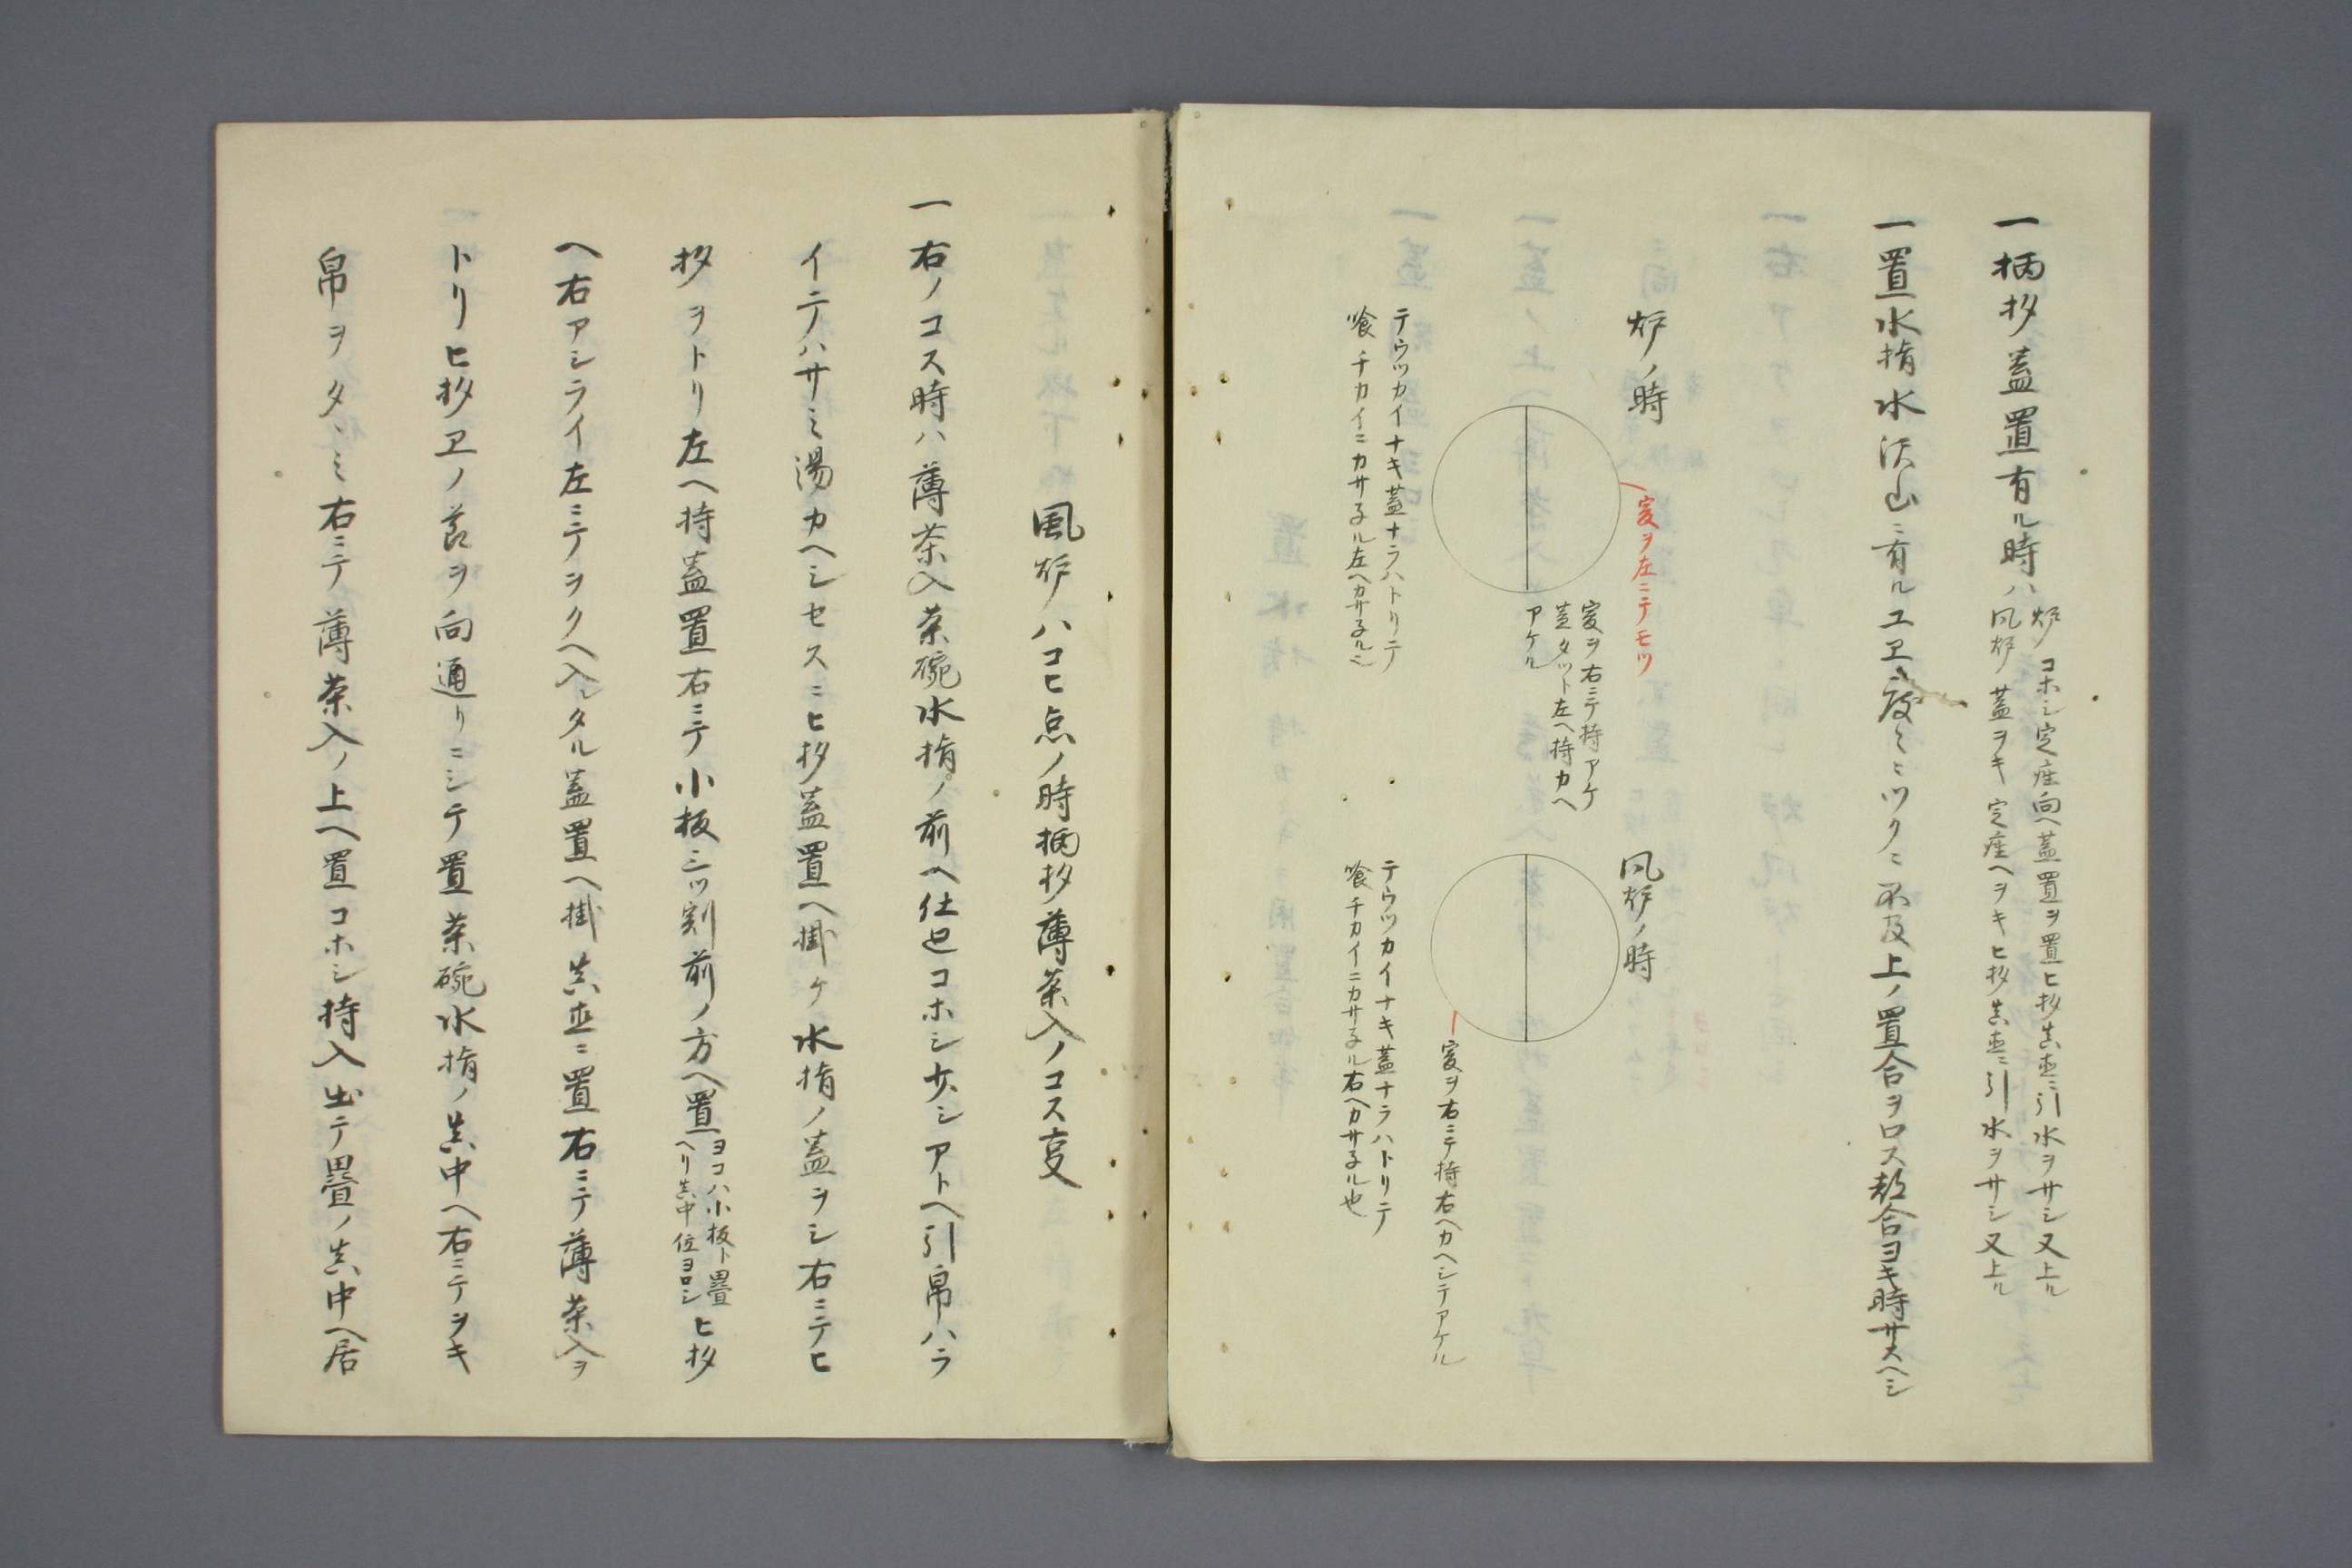 一柄杓蓋置有ル時ハ
炉 コホシ定座向ヘ蓋置ヲ置ヒ杓真直ニ引水ヲサシ又上ル
風炉 蓋ヲキ定座ヘヲキヒ杓真直ニ引水ヲサシ又上ル
一置水指水沢山ニ有ルユヱ度々ミツクニ不及上ノ置合ヲロス都合ヨキ時サスヘシ
炉ノ時
爰ヲ左ニテモツ
爰ヲ右ニテ持アケ
直タツト左ヘ持カヘ
アケル
テウツカイナキ蓋ナラハトリテ
喰チカイニカサ子ル左ヘカサ子ル
風炉ノ時
爰ヲ右ニテ持右ヘカヘシテアケル
テウツカイナキ蓋ナラハトリテ
喰チカイニカサ子ル右ヘカサ子ル也
風炉ハコヒ点ノ時柄杓薄茶入ノコス事
一右ノコス時ハ薄茶入茶碗水指ノ前ヘ仕𢌞コホシ少シアトヘ引帛ハラ
イニテハサミ湯カヘシセスニヒ杓蓋置ヘ掛ケ水指ノ蓋ヲシ右ニテヒ
杓ヲトリ左ヘ持蓋置右ニテ小板三ツ割前ノ方ヘ置
ヨコハ小板ト畳
ヘリ真中位ヨロシ
ヒ杓
ヘ右アシライ左ニテヲクヘ入レタル蓋置ヘ掛真直ニ置右ニテ薄茶入ヲ
トリヒ杓ヱノ節ヲ向通リニシテ置茶碗水指ノ真中ヘ右ニテヲキ
帛ヲタヽミ右ニテ薄茶入ノ上ヘ置コホシ持入出テ畳ノ真中ヘ居